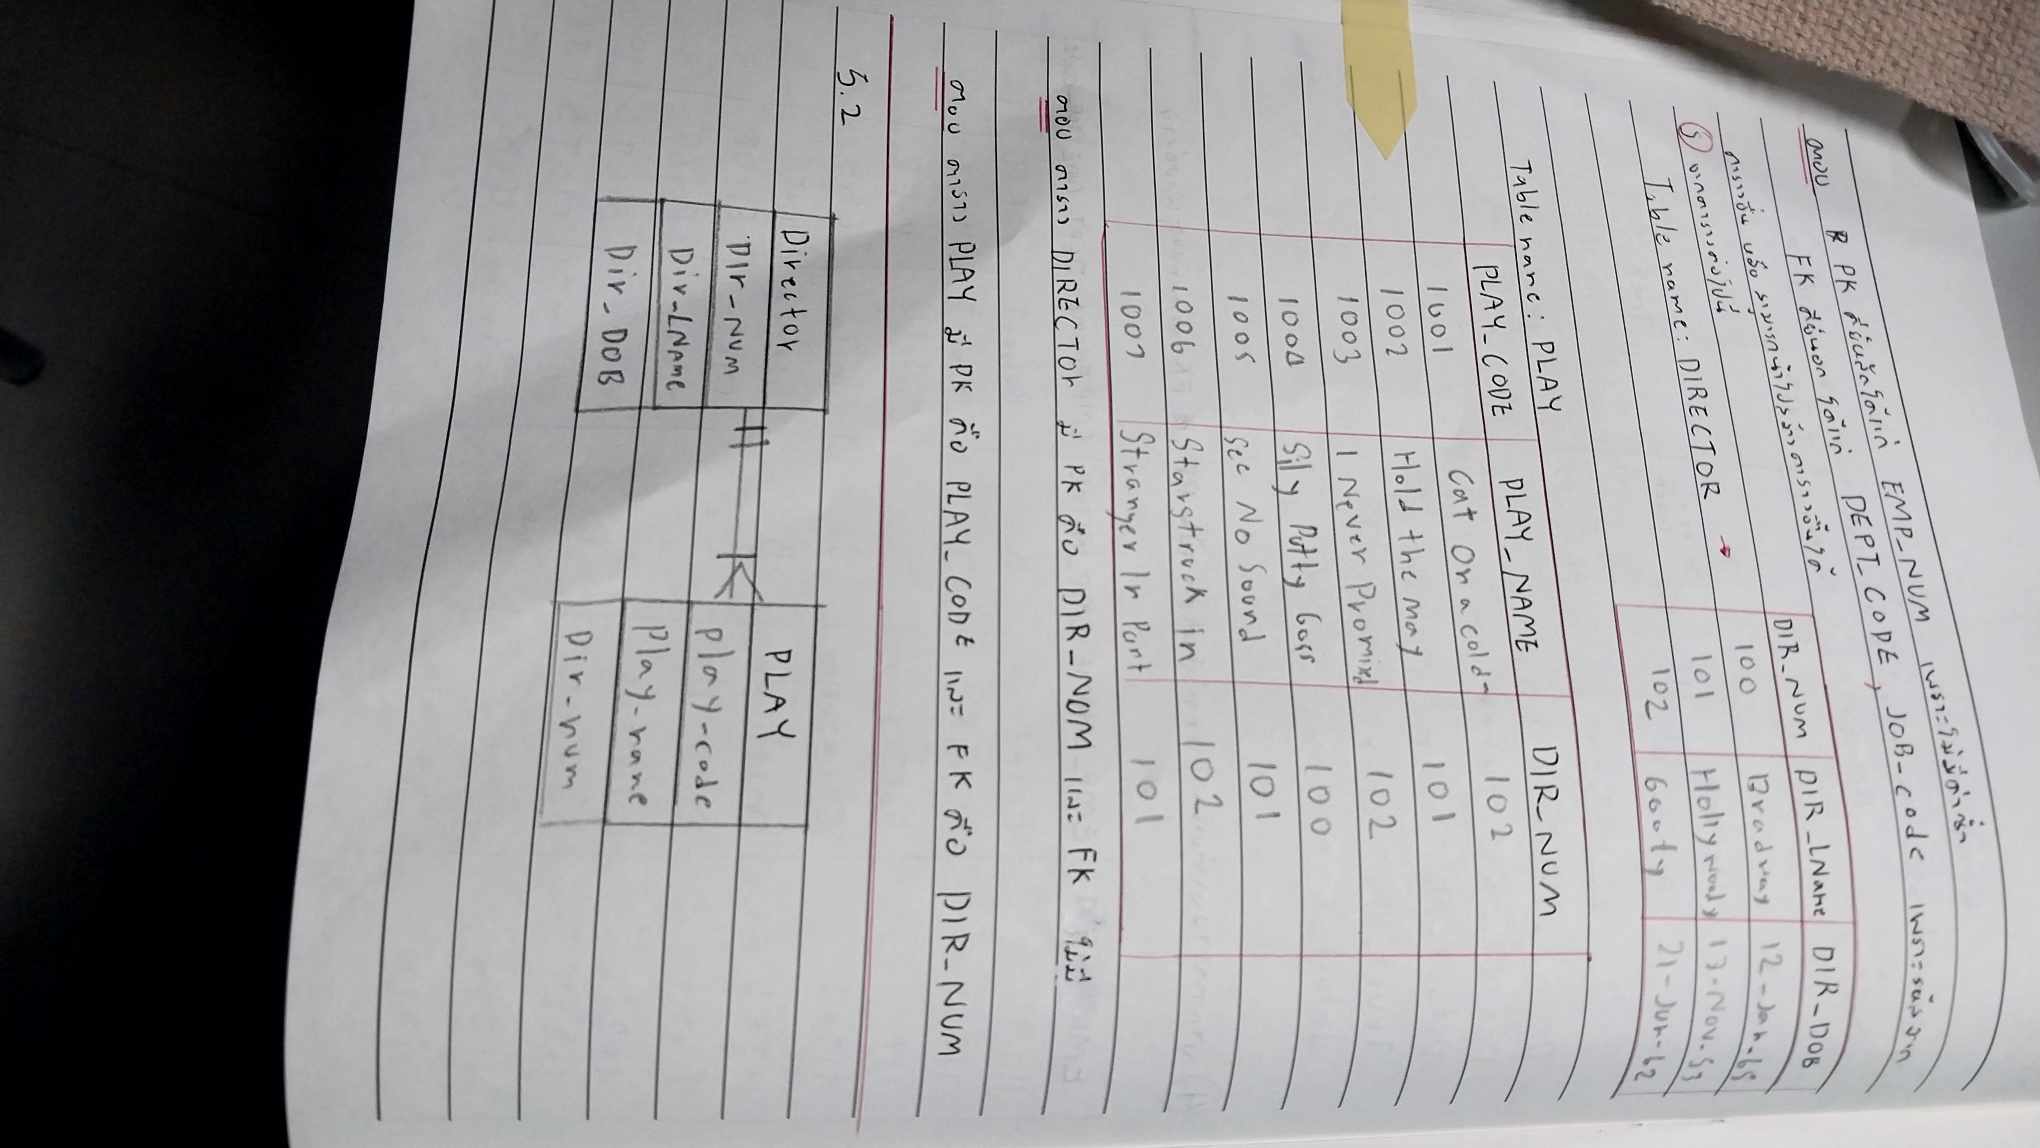 ตอบ PK คีย์หลักได้แก่ EMP_NUM เพราะไม่มีค่าซ้ำ
FK คีย์นอก ได้แก่ DEPT_CODE, JOB-code เพราะ
ตารางอื่น
5 จากตารางต่อไปนี้
Table name: DIRECTOR →
DIR_NUM DIR_LName DIR_DOB
100 12-Jan-65
101 Hollywoody 13-Nov-53
102 Goofy 21-Jun-62
Table name: PLAY
PLAY_CODE PLAY_NAME DIR_NUM
1001 Cat On a cold- 102
1002 Hold the may 101
1003 I Never Promised 102
1004 Silly Putty 100
1005 See No Sound 101
1006 Starstruck In 102
1007 Stranger In Parrt 101
ตอบ ตาราง DIRECTOR มี PK คือ DIR_NUM และ FK ไม่มี
ตอบ ตาราง PLAY มี PK คือ PLAY_CODE และ FK คือ DIR_NUM
5.2
Director PLAY
DIr_NUM play-code
Dir_LName Play-name
Dir_DOB Dir-num